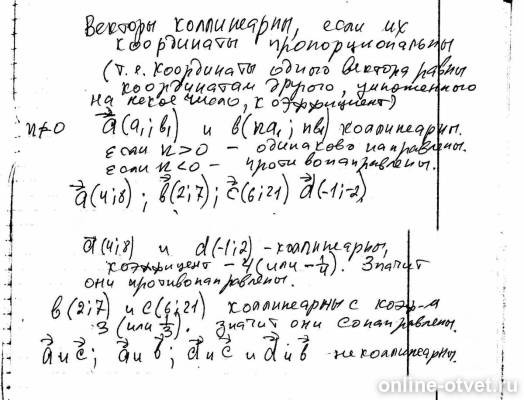 Векторы коллинеарны, если их
координаты пропорциональны
(т.е. координаты одного вектора равны
координатам другого, умноженного
на некое число, коэффициент)
n≠0 a(a₁; b₁) и b(na₁; nb₁) коллинеарны.
если n>0 – одинаково направлены.
если n<0 – противонаправлены.
a(4;8); b(2;7); c(6;21) d(-1;-2)
a(4;8) и d(-1;2) - коллинеарны,
коэффицент -4 (или -1/4). Значит
они противонаправлены.
b(2;7) и c(6;21) коллинеарны с коэф-м
3 (или 1/3). Значит они сонаправлены.
a и c; a и b; d и c и d и b не коллинеарны.
online-otvet.ru